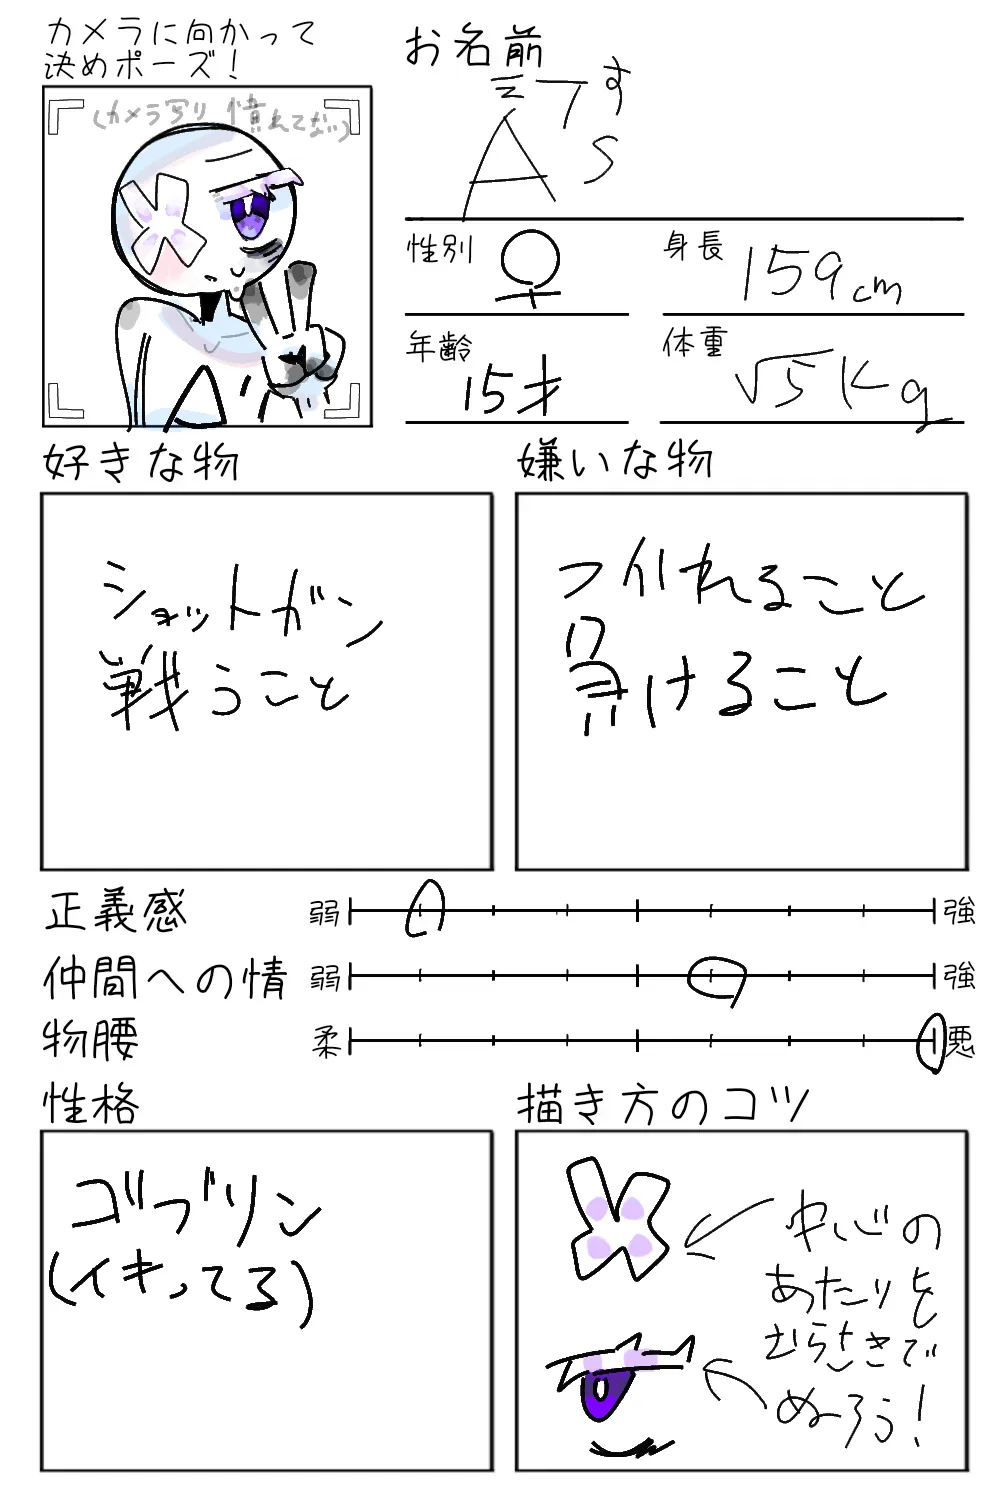 カメラに向かって
決めポーズ！
(カメラ写り慣れてない)
お名前
As
性別 ♀
身長 159cm
年齢 15才
体重 √5kg
好きな物
嫌いな物
ショットガン
戦うこと
負けること
正義感 弱 強
仲間への情 弱 強
物腰 柔 悪
性格
描き方のコツ
ゴブリン
(イキってる)
中心の
あたりを
むらさきで
ぬろう！